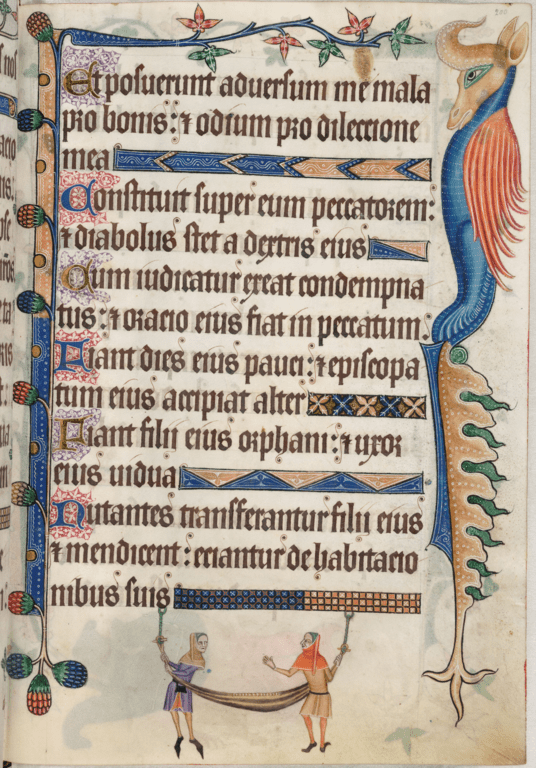 Et posuerunt adversum me mala
pro bonis: ⁊ odium pro dileccione
mea
Constituit super eum peccatorem:
⁊ diabolus stet a dextris eius
Cum iudicatur exeat condempna
tus: ⁊ oracio eius fiat in peccatum.
Fiant dies eius pauci: ⁊ episcopa
tum eius accipiat alter
Fiant filii eius orphani: ⁊ uxor
eius uidua
Nutantes transferantur filii eius
⁊ mendicent: eciantur de habitacio
nibus suis